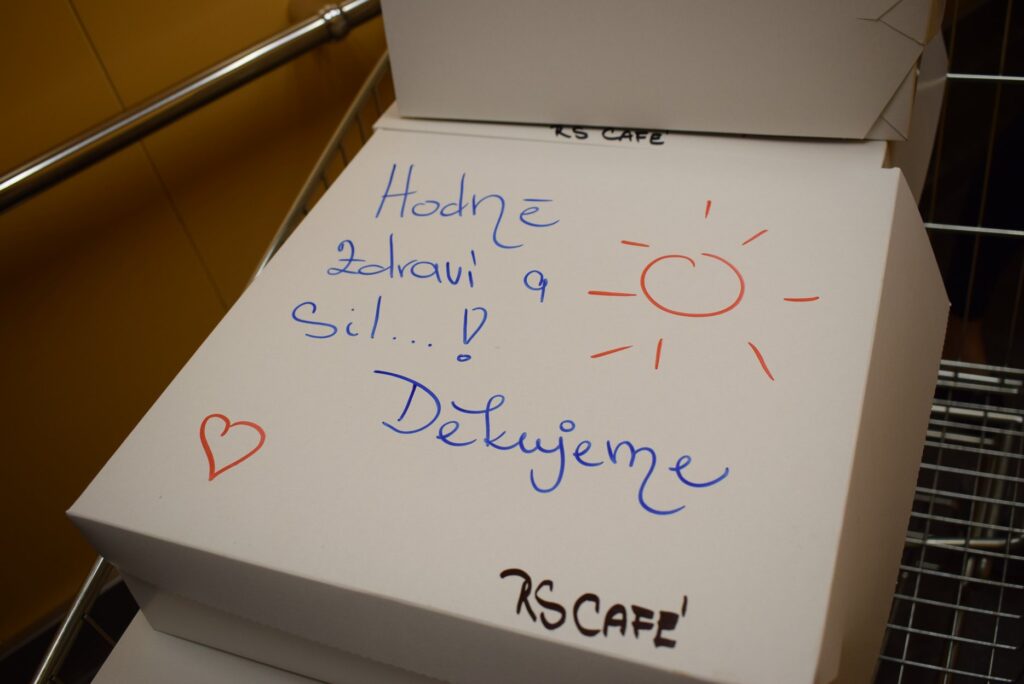 RS CAFE
Hodně
Zdraví a
Sil...!
Děkujeme
RS CAFÉ